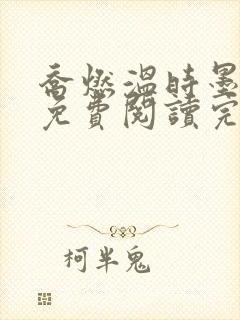 喬燃溫時墨
免費閱讀完
柯半鬼